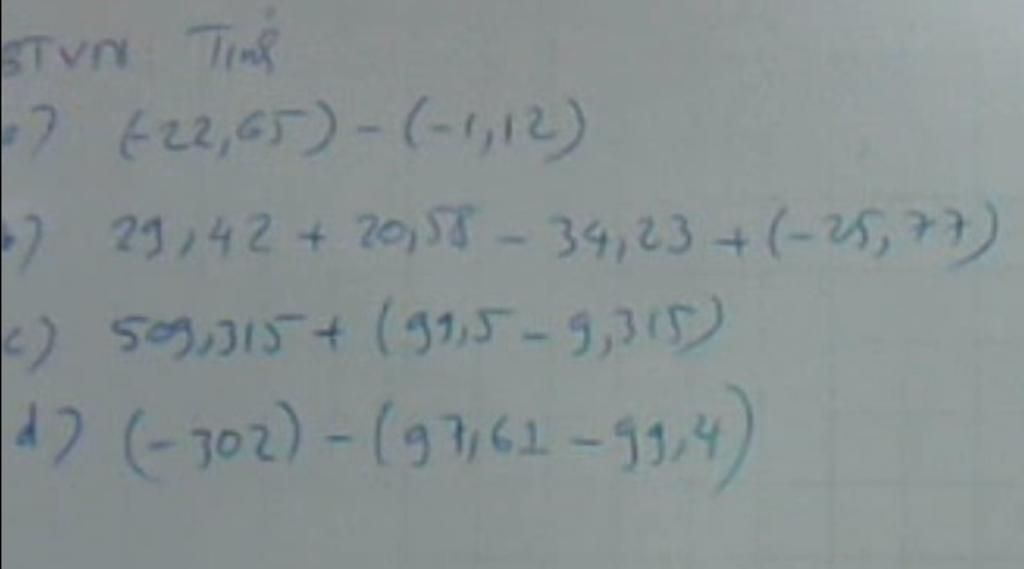 BTVN: Tính
a) (-22,65) - (-1,12)
b) 29,42 + 20,58 - 34,23 + (-25,77)
c) 509,315 + (99,5 - 9,315)
d) (-302) - (97,61 - 99,4)